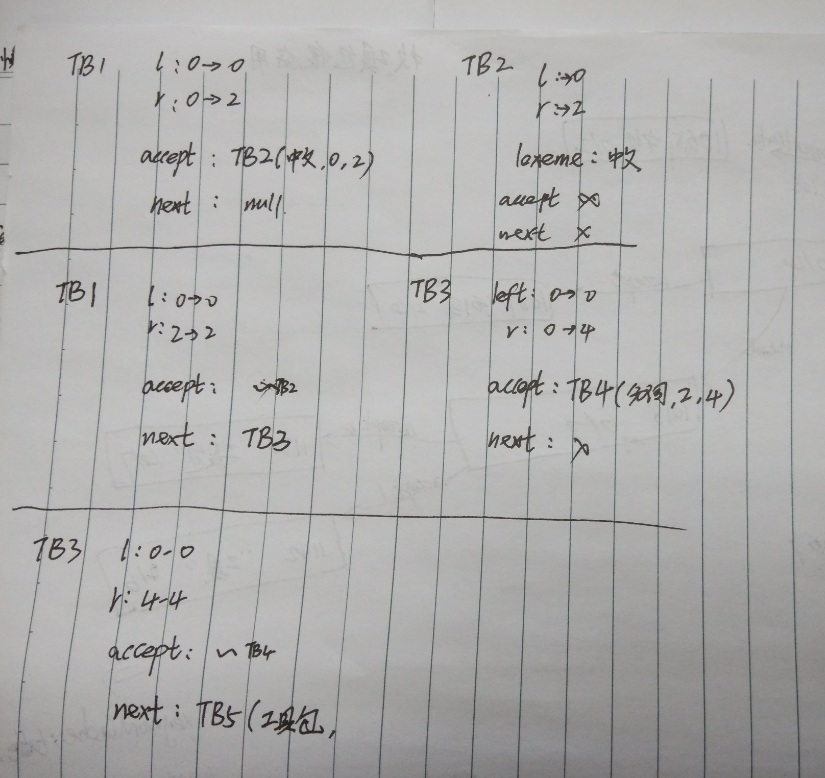 TB1 l : 0→0
r : 0→2
accept : TB2(中文,0,2)
next : null
TB2 l :→0
r :→2
lexeme : 中文
accept ×
next ×
TB1 l : 0→0
r: 2→2
accept: TB2
next : TB3
TB3 left: 0→0
r: 0→4
accept : TB4(分词,2,4)
next : ×
TB3 l : 0-0
r: 4-4
accept: ~ TB4
next : TB5(工具包,